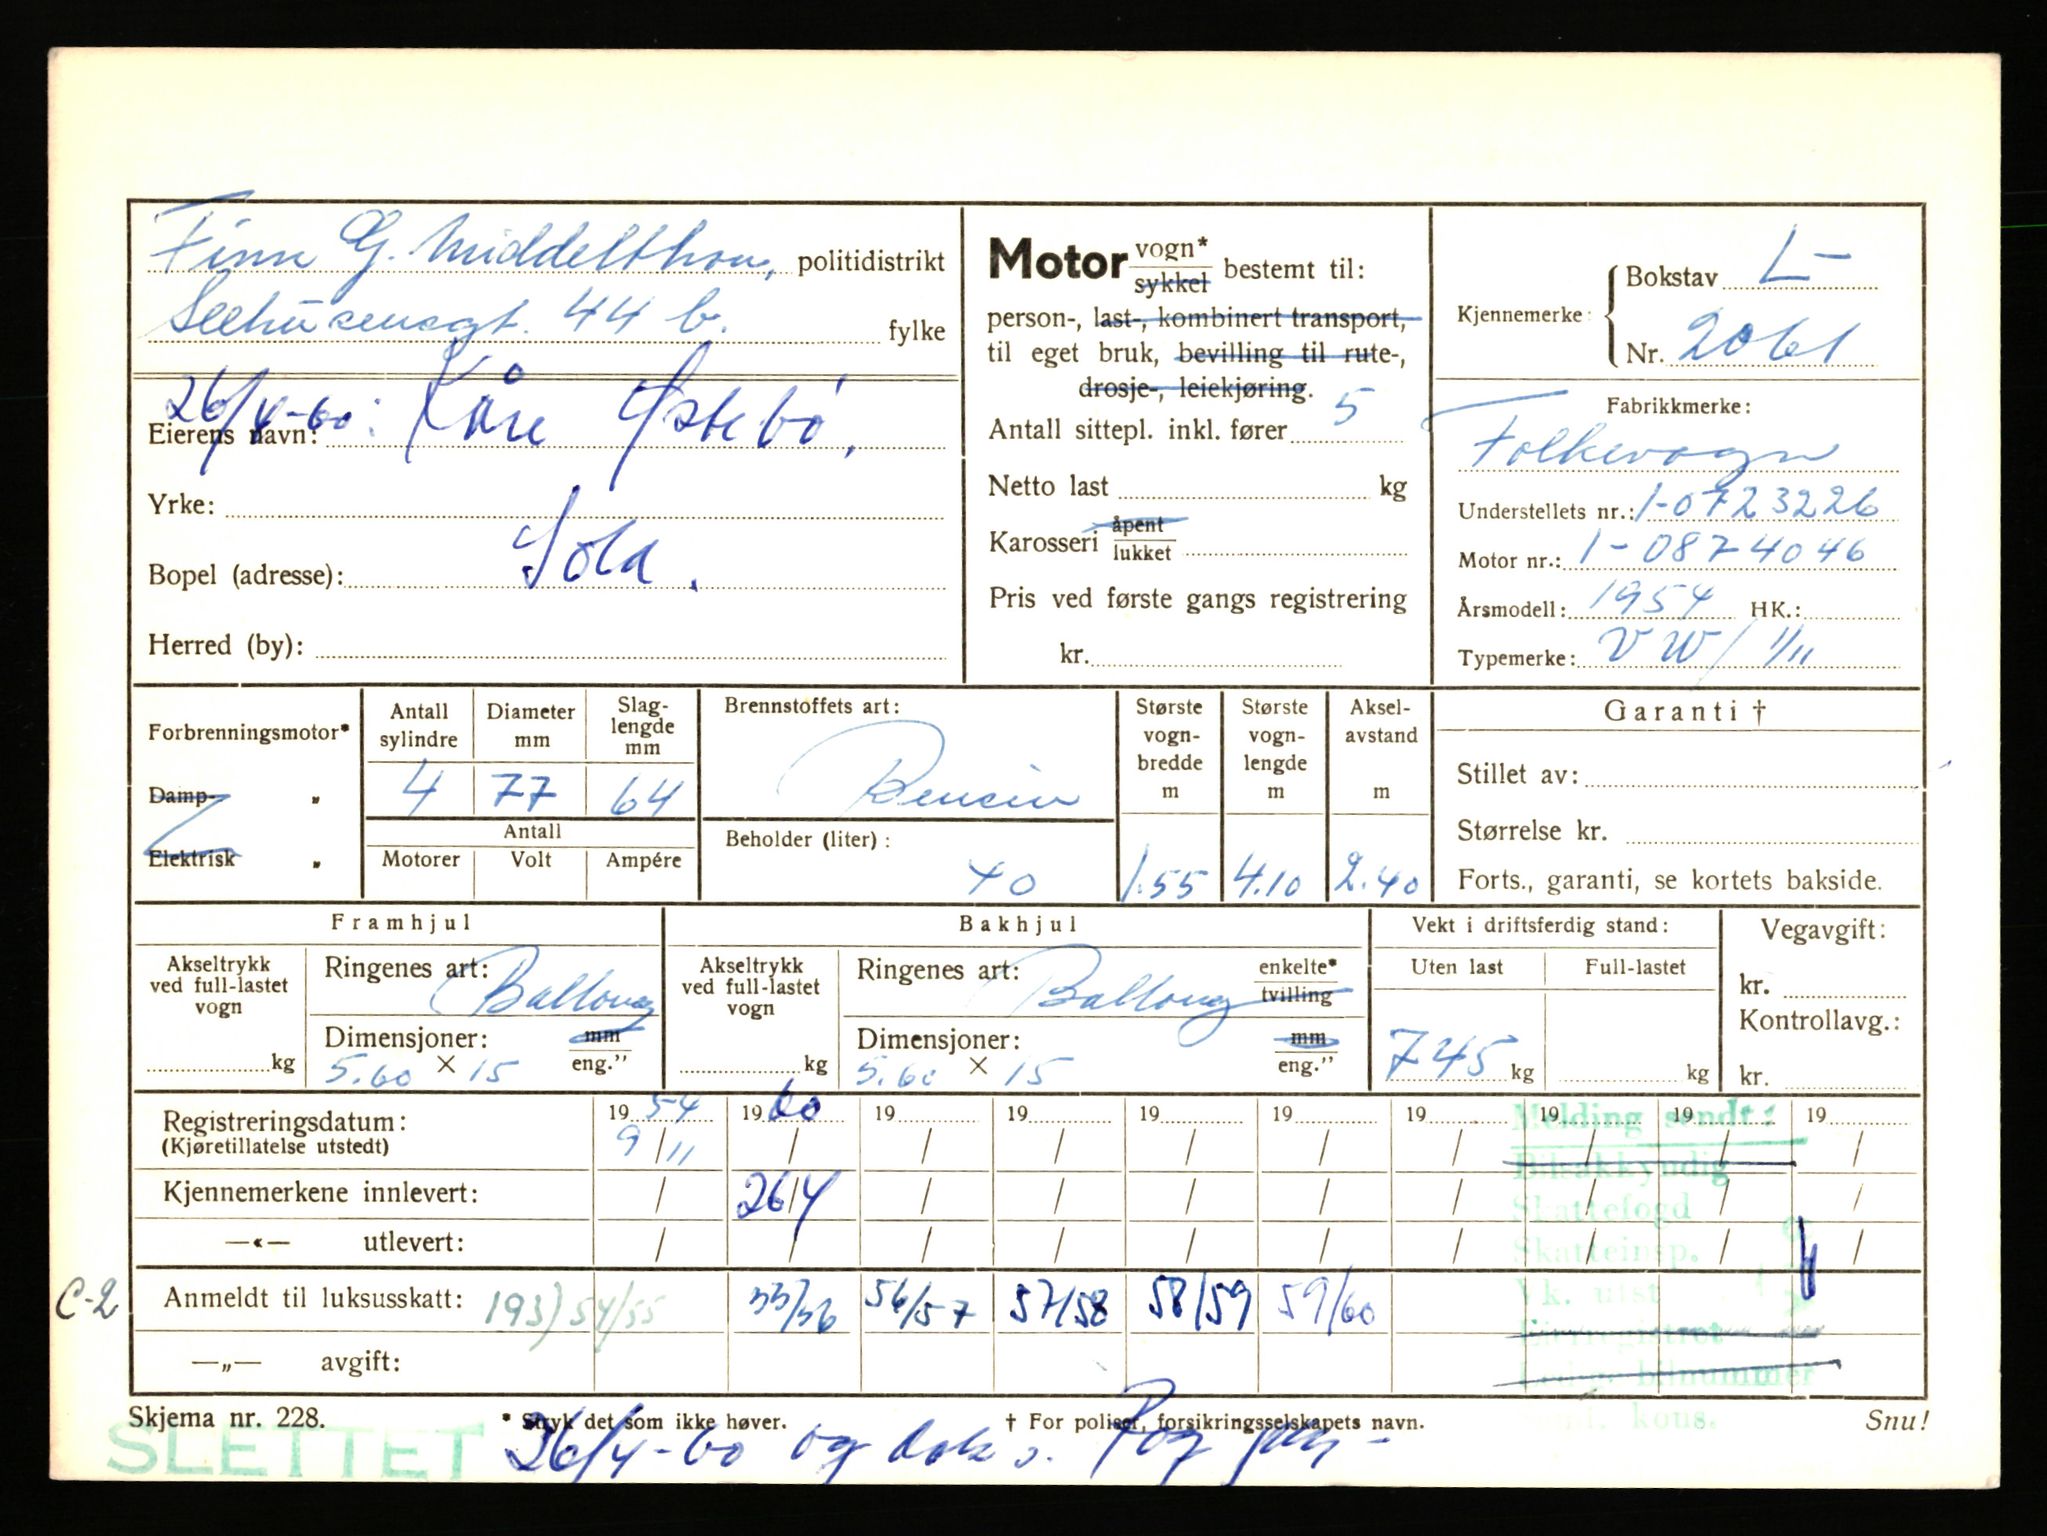 Finn G. Middelthon, politidistrikt
Seehusensgt. 44 b. fylke
26/4-60: Kåre Østebø,
Eierens navn:
Yrke:
Bopel (adresse): Sola.
Herred (by):
Motor vogn* / sykkel bestemt til:
person-, last-, kombinert transport,
til eget bruk, bevilling til rute-,
drosje-, leiekjøring.
Antall sittepl. inkl. fører 5
Netto last kg
Karosseri åpent / lukket
Pris ved første gangs registrering
kr.
Kjennemerke: Bokstav L-
Nr. 2061
Fabrikkmerke:
Folkevogn
Understellets nr.: 1-0723226
Motor nr.: 1-0874046
Årsmodell: 1954 HK.:
Typemerke: VW/ 1/11
Forbrenningsmotor*
Damp- „
Elektrisk „
Antall sylindre Diameter mm Slaglengde mm
4 77 64
Antall
Motorer Volt Ampére
Brennstoffets art:
Bensin
Beholder (liter):
40
Største vognbredde m 1.55
Største vognlengde m 4.10
Akselavstand m 2.40
Garanti †
Stillet av:
Størrelse kr.
Forts., garanti, se kortets bakside.
Framhjul
Akseltrykk ved full-lastet vogn kg
Ringenes art: Ballong
Dimensjoner: mm / eng."
5.60 × 15
Bakhjul
Akseltrykk ved full-lastet vogn kg
Ringenes art: Ballong enkelte* / tvilling
Dimensjoner: mm / eng."
5.60 × 15
Vekt i driftsferdig stand:
Uten last Full-lastet
745 kg kg
Vegavgift:
kr.
Kontrollavg.:
kr.
Registreringsdatum: 19 54 19 60 19 19 19 19 19 19 19 19
(Kjøretillatelse utstedt) 9/11 / / / / / / / / /
Kjennemerkene innlevert: / 26/4 / / / / / / / /
—«— utlevert: / / / / / / / / / /
C-2 Anmeldt til luksusskatt: 193) 54/55 55/56 56/57 57/58 58/59 59/60
—„— avgift:
Melding sendt:
Bilsakkyndig
Skattefogd
Skatteinsp.
Vk. utst
bilnummer
kons.
Skjema nr. 228. * Stryk det som ikke høver. † For poliser, forsikringsselskapets navn. Snu!
SLETTET 26/4-60 og